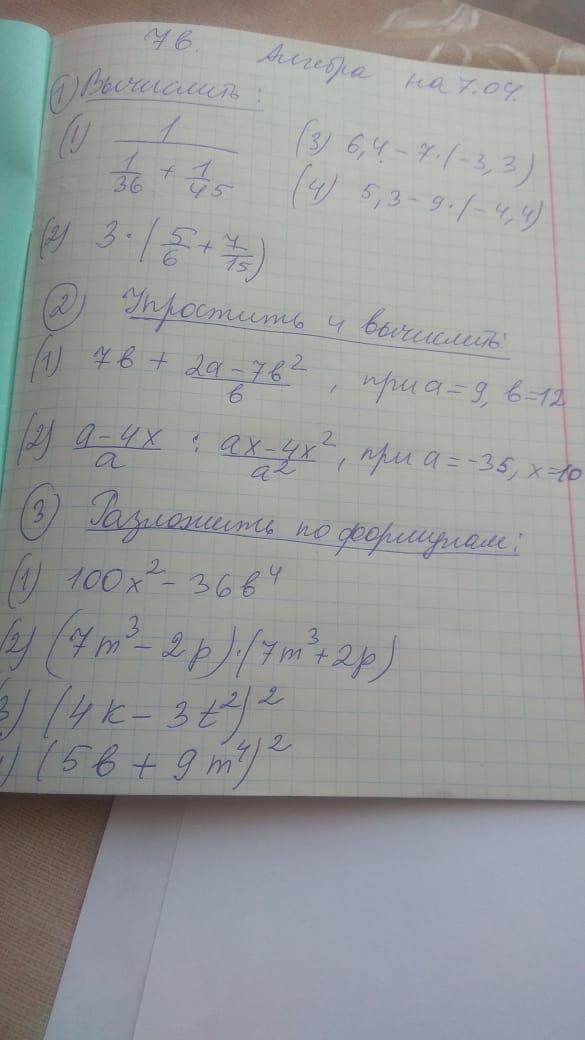 7в. Алгебра на 7.04.
① Вычислить:
(1) 1/(1/36 + 1/45) (3) 6,4 - 7·(-3,3)
(2) 3·(5/6 + 7/15) (4) 5,3 - 9·(-4,4)
② Упростить и вычислить:
(1) 7в + (2а - 7в²)/в, при а = 9, в = 12
(2) (а - 4х)/а : (ах - 4х²)/а², при а = -35, х = 10
③ Разложить по формулам:
(1) 100х² - 36в⁴
(2) (7m³ - 2p)·(7m³ + 2p)
3) (4к - 3t²)²
) (5в + 9m⁴)²